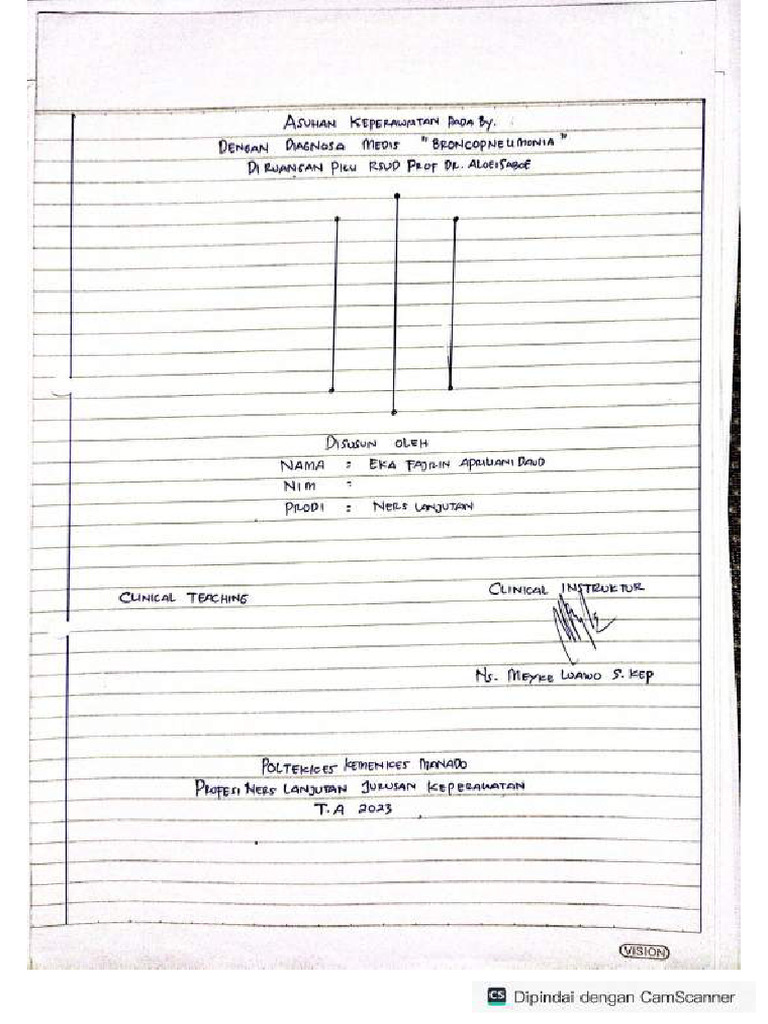 ASUHAN KEPERAWATAN PADA By.
DENGAN DIAGNOSA MEDIS "BRONCOPNEUMONIA"
DI RUANGAN PICU RSUD PROF DR. ALOEISABOE
DISUSUN OLEH
NAMA : EKA FADRIN APRILIANI DAUD
NIM :
PRODI : NERS LANJUTAN
CLINICAL TEACHING
CLINICAL INSTRUKTUR
Ns. MEYKE LUAWO S.KEP
POLTEKKES KEMENKES MANADO
PROFESI NERS LANJUTAN JURUSAN KEPERAWATAN
T.A 2023
VISION
CS Dipindai dengan CamScanner